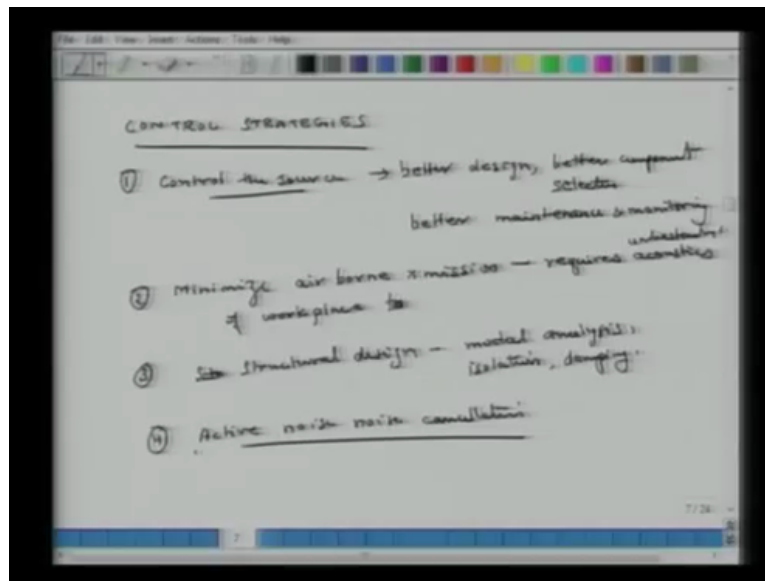 File Edit View Insert Actions Tools Help
CONTROL STRATEGIES
① Control the source → better design, better component
selection
better maintenance & monitoring
understanding
② Minimize air borne xmission – requires acoustics
of workplace
③ Structural design – modal analysis,
isolation, damping.
④ Active noise noise cancellation
7/24
7